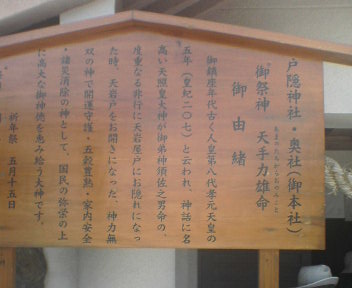 戸隠神社・奥社(御本社)
御祭神 天手力雄命
あめのたぢからおのみこと
御由緒
御鎮座年代古く人皇第八代孝元天皇の
五年(皇紀二〇七)と云われ、神話に名
高い天照皇大神が御弟神須佐之男命の、
度重なる非行に天岩屋戸にお隠れになっ
た時、天岩戸をお開きになった、神力無
双の神で開運守護・五穀豊熟・家内安全
・諸災消除の神として、国民の弥栄の上
に高大な御神徳を恵み給う大神です。
祈年祭 五月十五日